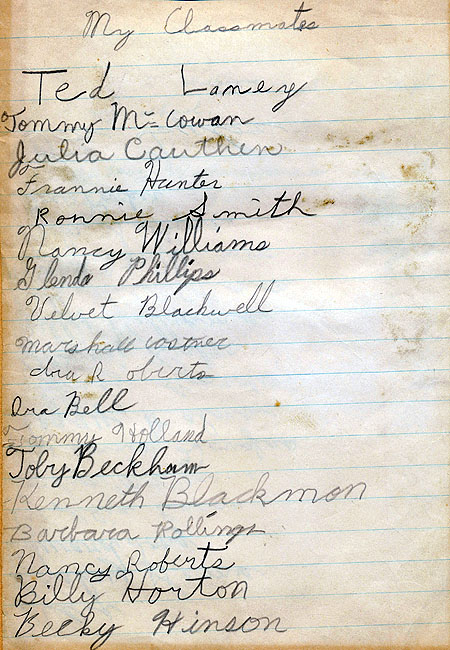 My Classmates
Ted Laney
Tommy McCowan
Julia Cauthen
Frannie Hunter
Ronnie Smith
Nancy Williams
Glenda Phillips
Velvet Blackwell
Marshall Costner
Ira Roberts
Ira Bell
Tommy Holland
Toby Beckham
Kenneth Blackmon
Barbara Rollings
Nancy Roberts
Billy Horton
Becky Hinson